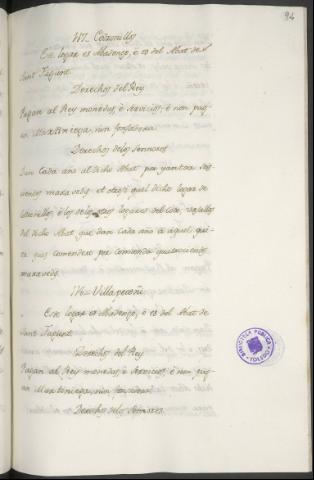 94
Este logar es Abadengo, è es del Abat de
Sant Fagunt.
Derechos del Rey
Pagan al Rey monedas, è servicios, è non pag-
an Martiniega, nin fonsadera.
Derechos delos Sennores
Dan Cada año al dicho Abat por yantar
maravedis. et este qual dicho logar de
è los delos otros logares del Coto, vasallos
del dicho Abat que dan Cada año à aquel que
comendero por comienda quatrocientos
maravedis.
Este logar es Abadengo, è es del Abat de
Sant Fagunt.
Derechos del Rey
Pagan al Rey monedas, è servicios, è non pag-
an Martiniega, nin fonsadera.
Derechos delos Sennores.
BIBLIOTECA PUBLICA
TOLEDO